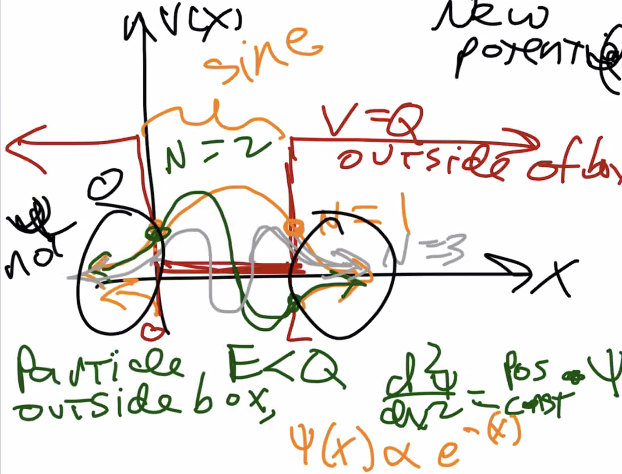 V(X)
New
potenti
sine
V = Q
outside of box
N = 2
O
Ψ
not
N = 1
N = 3
X
O
L
Particle, E < Q
outside box,
d²Ψ/dx² = pos const • Ψ
Ψ(x) ∝ e^-(x)